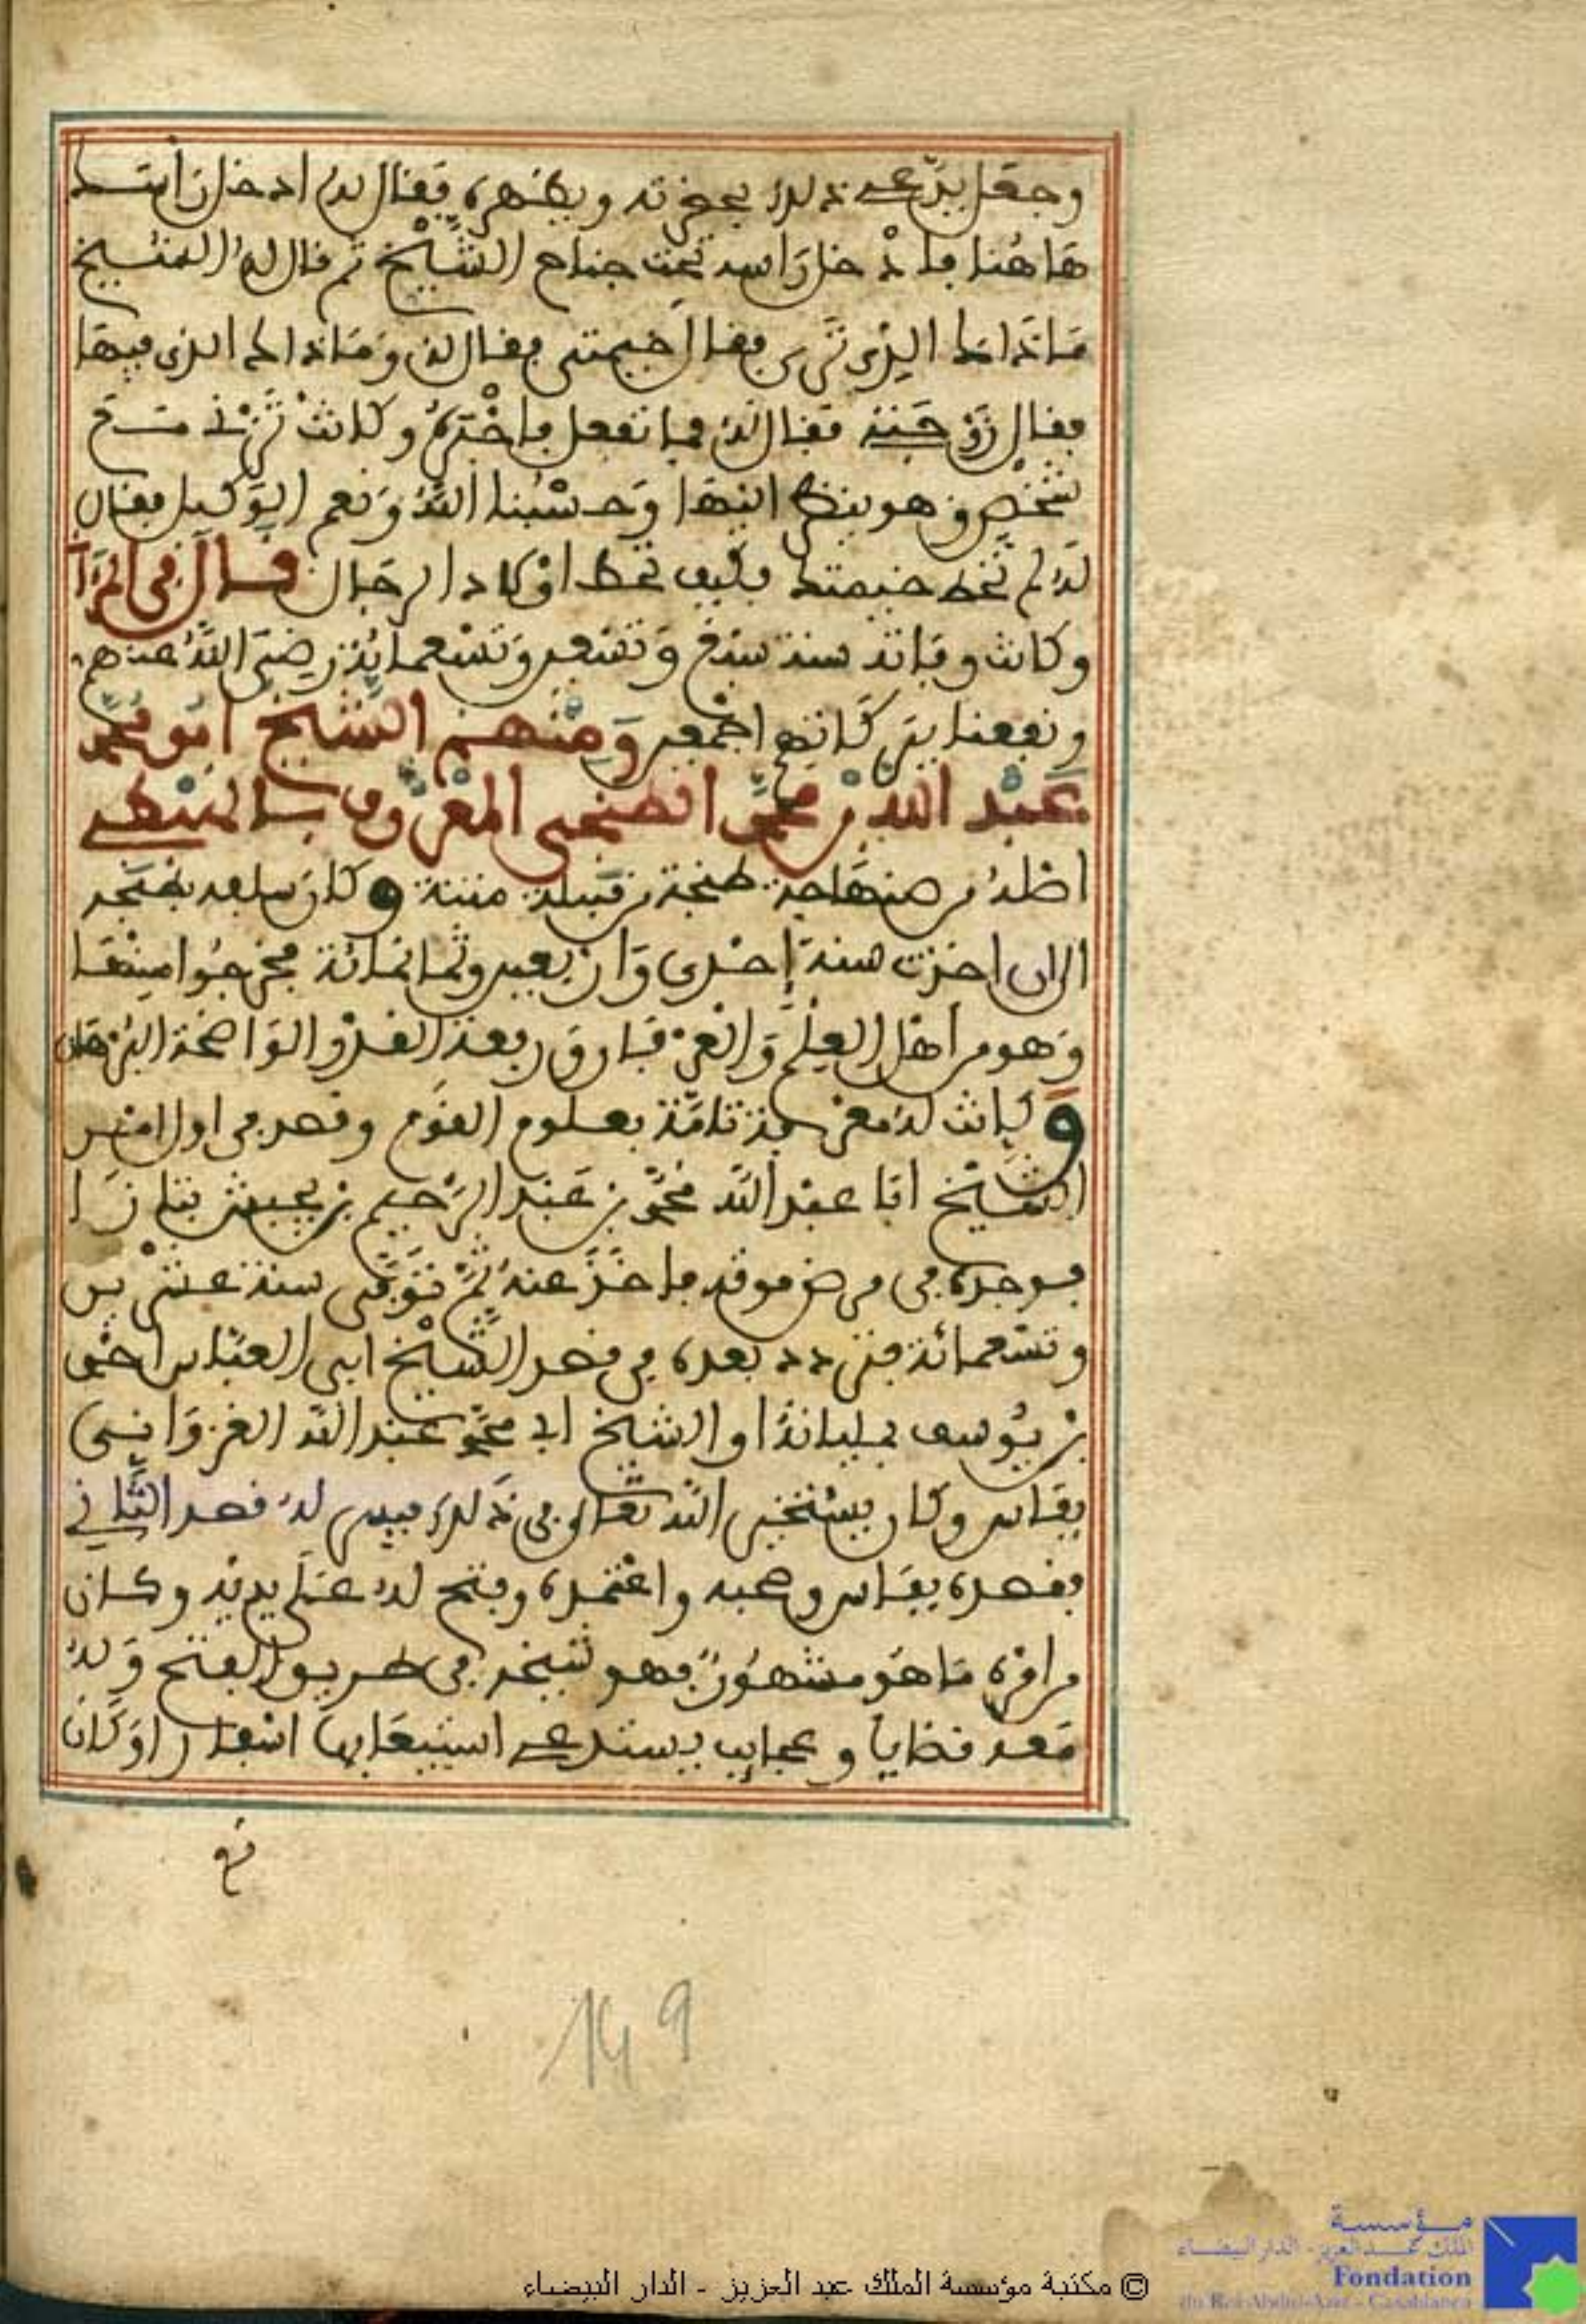 وجعل يدّعي ذلك بحضرته ويظهره فقال له ادخل رأسك
هَاهُنا فادخل رَاسه تحت جناح الشّيْخ ثم قال لهُ الشيخ
مَا ذَا الذي تَرى فقال خيمتي فقال له وَمَا ذا الذي فيها
فقال زَوْجَتِي فقال له فما تفعل فاخْبَرهُ وكانتْ تَزْنِي مَع
شخْصٍ وهو ينظر اليْهَا وَحسْبُنا اللهُ وَنعم الوَكيل فقال
لهُ لم تَحْظ خيمتك فكيف تحظ اوْلاد الرجَال قال في المرآ
وكانت وفاته سنة سَبْع وَتسْعين وَتسْعمائة رضيَ اللهُ عنهم
ونفعنا ببَركَاتهم اجْمعين وَمنْهم الشّيْخ ابُو مُحمّد
عَبْد الله بْن محمّد الطنجي المعْرُوف بـالهبْطي
اصْلهُ من صنهَاجة طنجة من قَبيلة متنة وكان سلفه بطنجة
الى ان اخذت سنة إحْدى وَارْبعين وثمانمائة فخرجُوا منْها
وَهو من اهْل العِلْم وَالعرْفان وَرفعة القدْر والوَاضحة البُرْهان
وكانتْ لهُ معْرفة تامّة بعلوم القوْم وقصد في اول امْره
الشّيْخ ابا عبْد الله مُحمّد بن عَبْد الرَّحيم بن يجبش بتازَا
فوجده في مرض موته فاخَذَ عنهُ ثُمّ تُوَفّي سنة عشْرين
وتسْعمائة فتردد بعده في قصد الشّيْخ ابي العبّاس احمد
بْن يُوسف بمليانة او الشيخ ابي محمّد عَبْد الله الغزوَاني
بفَاس وكان يسْتخير الله تعَالى في ذَلك فيسر لهُ قصد الثّاني
فقصده بفَاس وصحبه واعْتمده وفتح لهُ عَلى يديْه وكان
من امْره مَا هُو مشْهُورٌ فهو شيخه في طريق الفتح وَلهُ
مَعه قضايا وعجايب يستدعي استيعَابها اسْفارا وَكَان
149
© مكتبة مؤسسة الملك عبد العزيز - الدار البيضاء
مؤسسة
الملك عبد العزيز - الدار البيضاء
Fondation
du Roi Abdul-Aziz - Casablanca